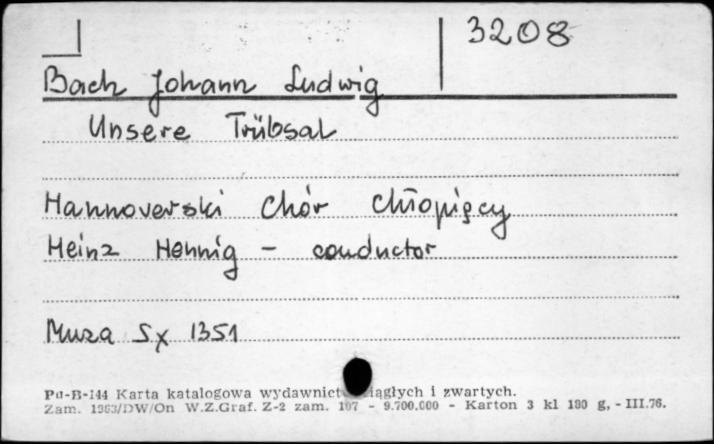 3208
Bach Johann Ludwig
Unsere Trübsal
Hannoverski Chór Chłopięcy
Heinz Hennig - conductor
Muza Sx 1351
Pu-B-144 Karta katalogowa wydawnict ciągłych i zwartych.
Zam. 1963/DW/On W.Z.Graf. Z-2 zam. 107 - 9.700.000 - Karton 3 kl 180 g, - III.76.